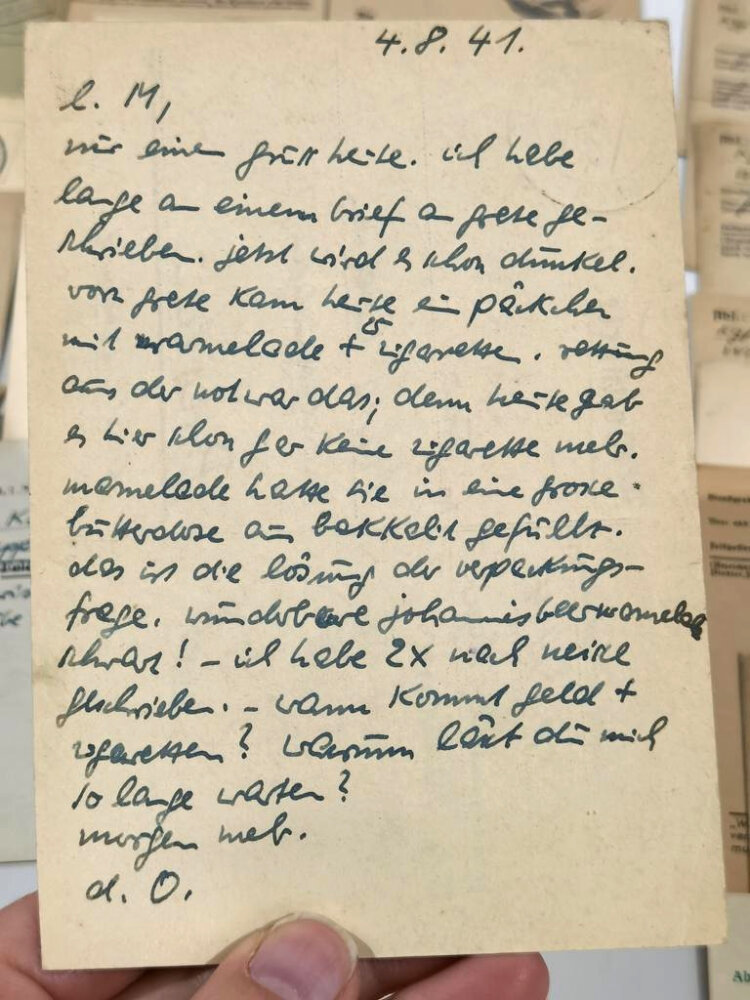 4.8.41.
l. M,
nur einen gruss heute. ich habe
lange an einem brief an grete ge-
schrieben. jetzt wird es schon dunkel.
von grete kam heute ein päckchen
mit marmelade + 25 zigaretten. rettung
aus der not war das; denn heute gab
es hier schon gar keine zigarette mehr.
marmelade hatte sie in eine grosse
butterdose aus bakkelit gefüllt.
das ist die lösung der verpackungs-
frage. wunderbare johannisbeermarmelade
schwarz! - ich habe 2x nach
geschrieben. - wann kommt geld +
zigaretten? warum läxt du mich
so lange warten?
morgen mehr.
d. O.